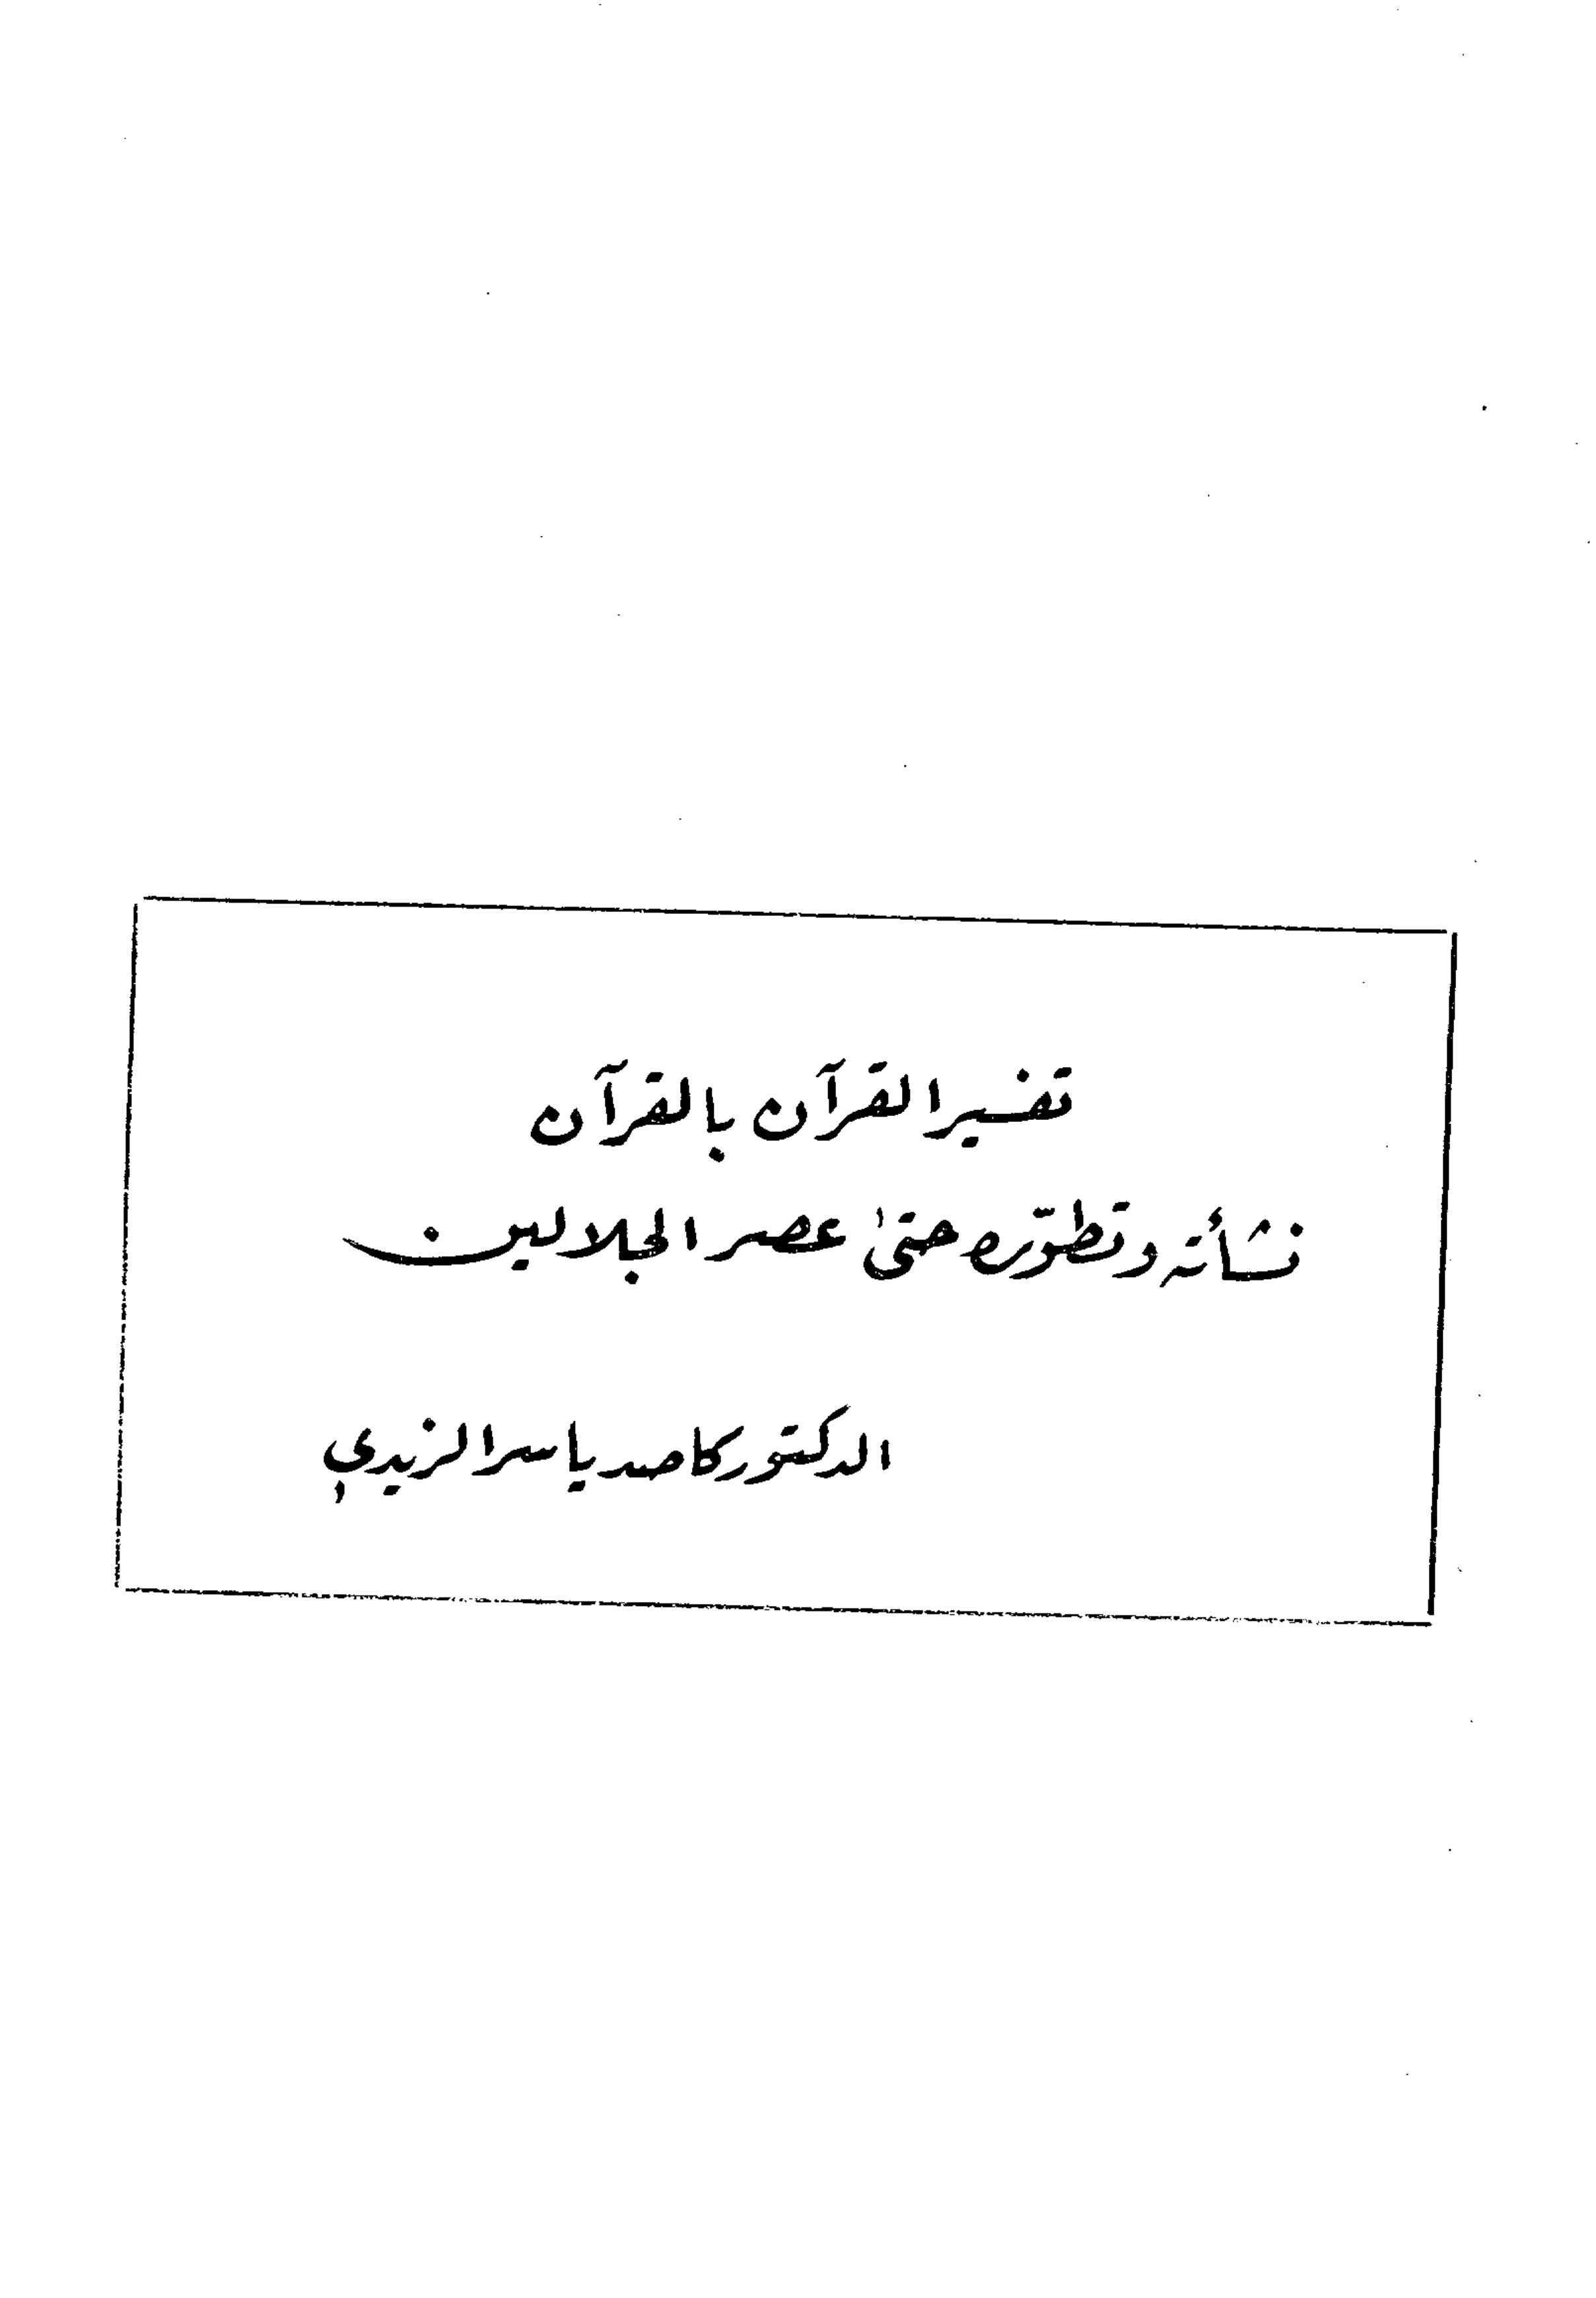 تفسير القرآن بالقرآن
نشأته وتطوّره حتىٰ عصر الجلالين
الدكتور كاصد ياسر الزيدي